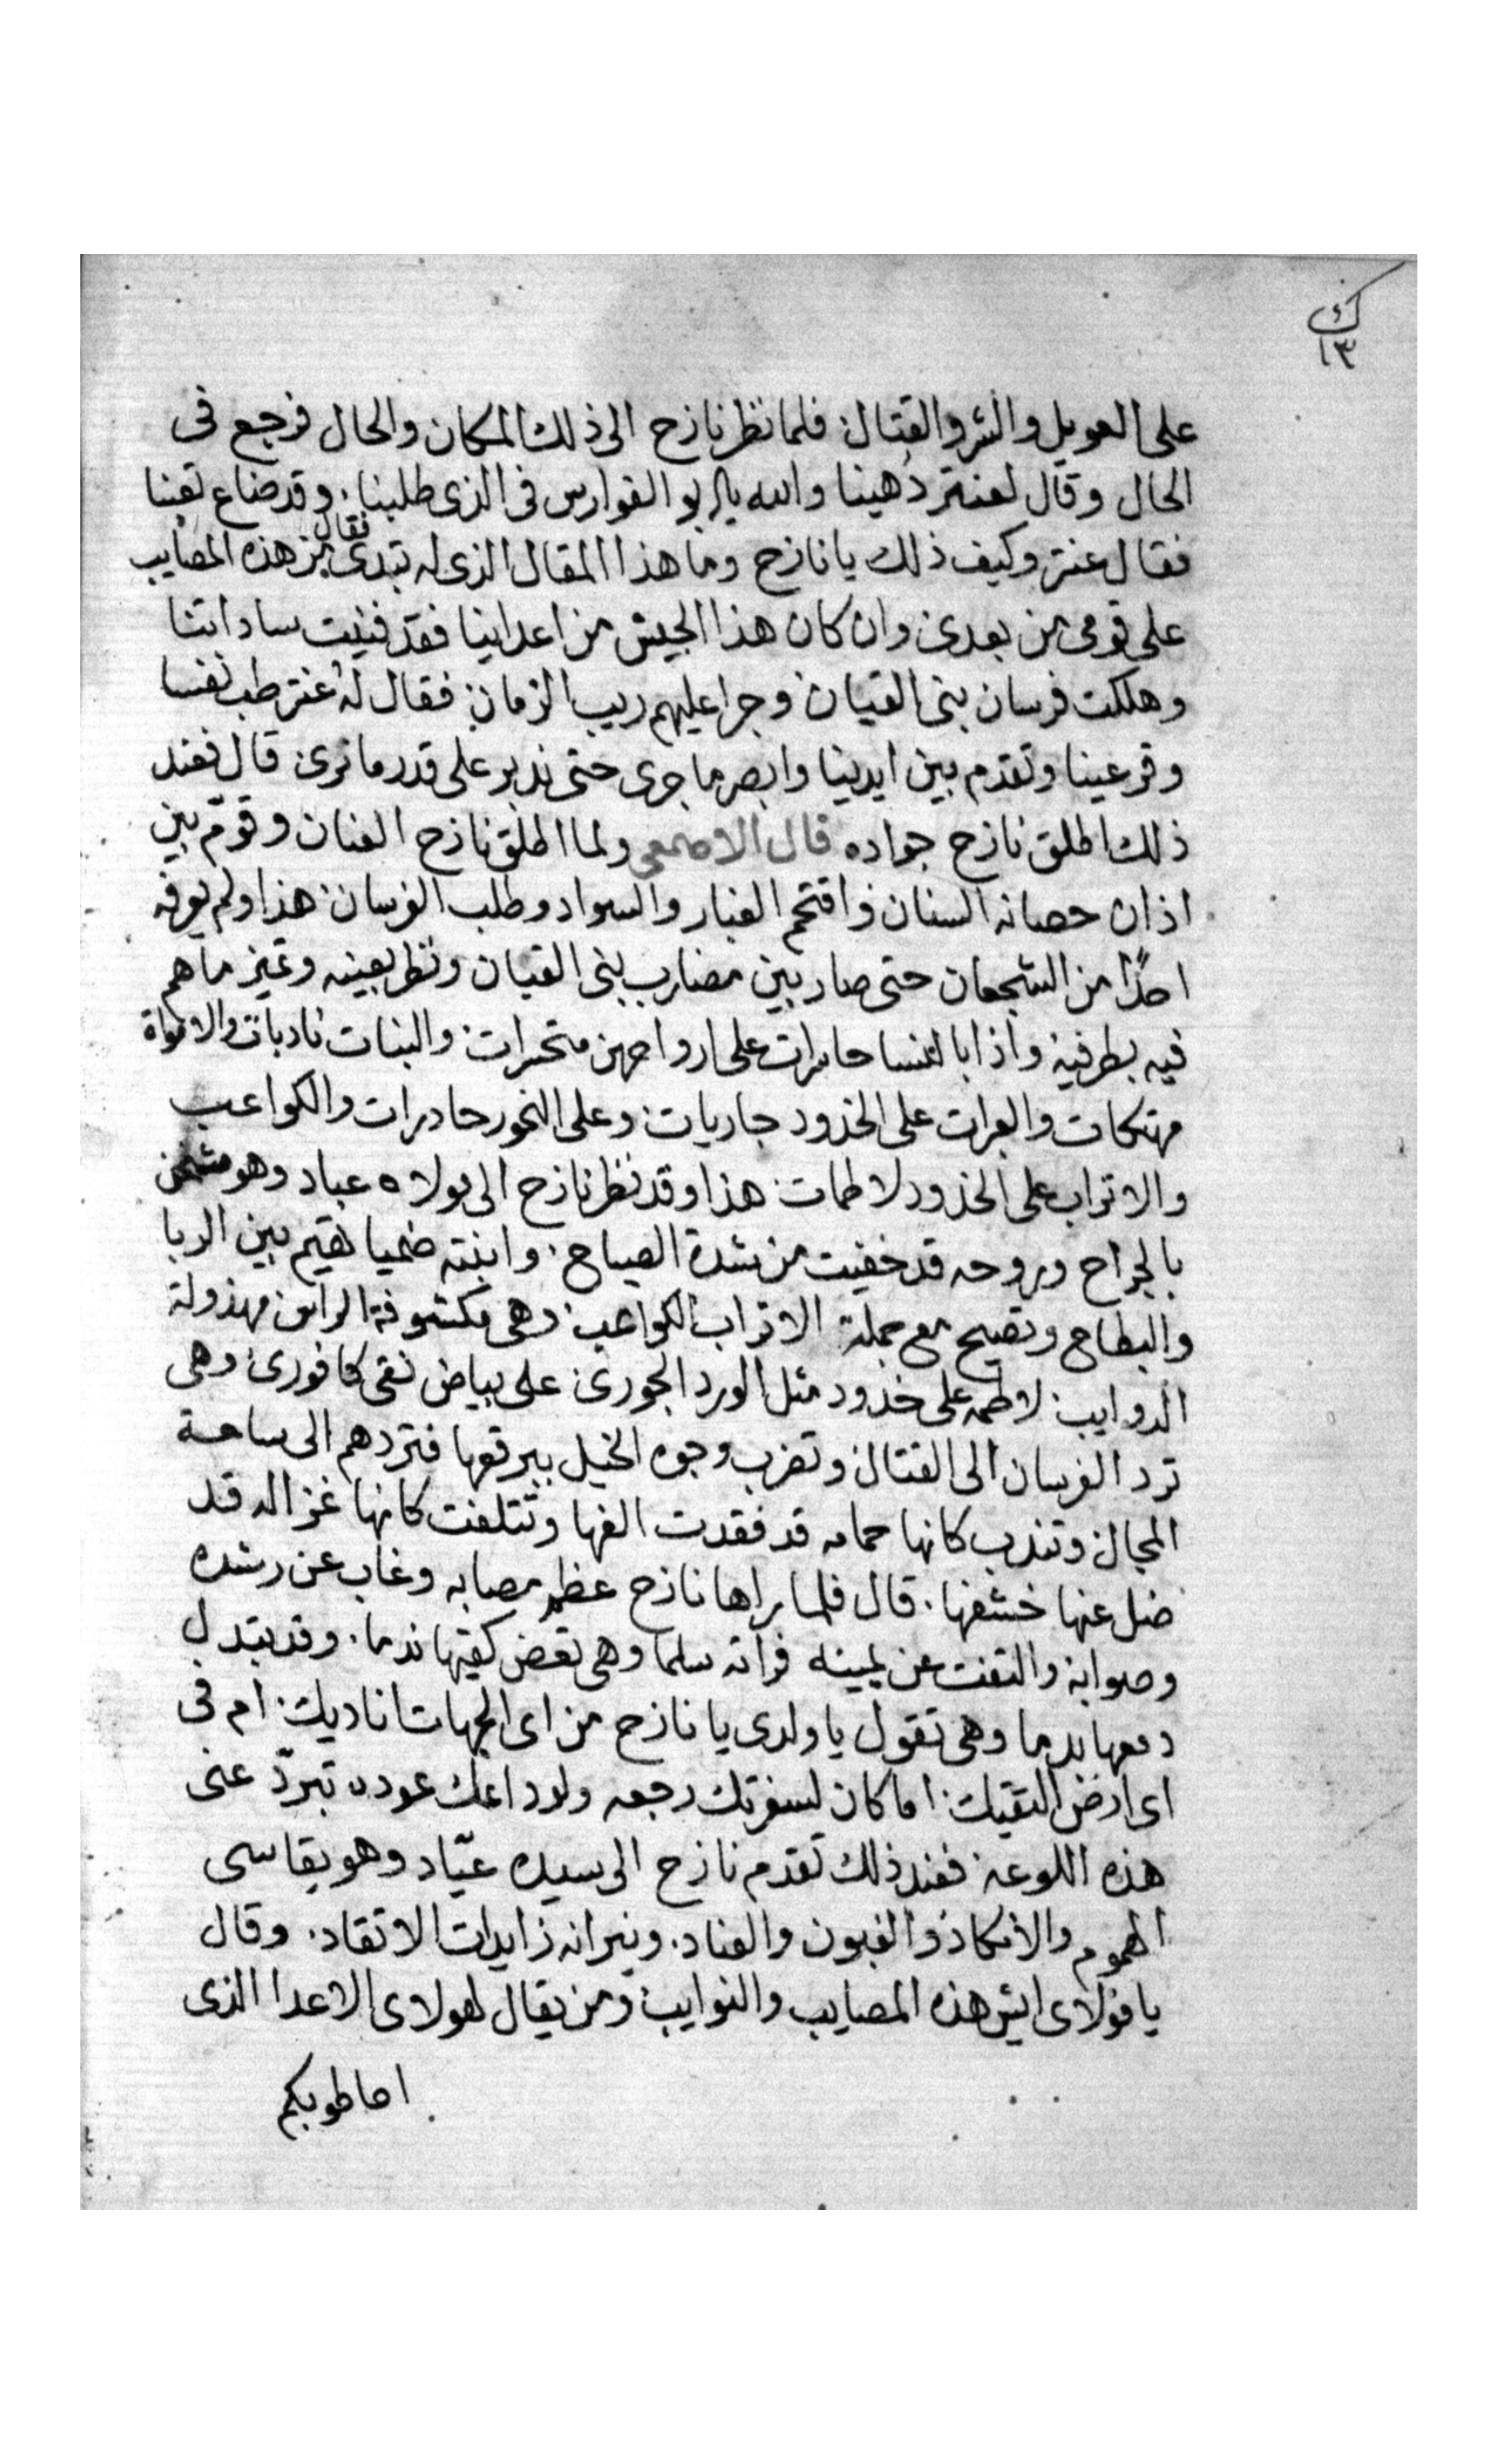 ك
١٣
على العويل والشر والقتال فلما نظر نازح الى ذلك المكان والحال فرجع فى
الحال وقال لعنتر دُهينا والله يا ابو الفوارس فى الذى طلبنا. وقد ضاع تعبنا
فقال عنتر وكيف ذلك يا نازح وما هذا المقال الذى له تبدى فقال من هذه المصايب
على قومى من بعدى وان كان هذا الجيش من اعداينا فقد فنيت ساداتنا
وهلكت فرسان بنى القيان وجرا عليهم ريب الزمان فقال له عنتر طب نفسا
وقر عينا وتقدم بين ايدينا وابصر ما جرى حتى ندبر على قدر ما نرى قال فعند
ذلك اطلق نازح جواده قال الاصمعى ولما اطلق نازح العنان وقوّم بين
اذان حصانه السنان واقتحم الغبار والسواد وطلب الفرسان هذا ولم يعرفه
احدًا من الشجعان حتى صار بين مضارب بنى القيان ونظر بعينه وميز ما هم
فيه بطرفيه واذا بالنسا حاسرات على ارواحهن متحسرات والبنات نادبات والاموة
مهتكات والعبرات على الخدود جاريات وعلى النحور حادرات والكواعب
والاتراب على الخدود لاطمات هذا وقد نظر نازح الى مولاه عباد وهو مثخن
بالجراح وروحه قد خفيت من شدة الصياح. وابنته ضميا تهيم بين الربا
والبطاح وتصيح مع جملة الاتراب الكواعب وهى مكشوفة الراس مهذولة
الدوايب لاطمه على خدود مثل الورد الجورى على بياض نقى كافورى وهى
ترد الفرسان الى القتال وتضرب وجوه الخيل ببرقعها فتردهم الى ساحة
المجال وتندب كانها حمامه قد فقدت الفها وتتلفت كانها غزاله قد
ضل عنها خشفها. قال فلما راها نازح عظم مصابه وغاب عن رشده
وصوابه والتفت عن يمينه فرأته سلما وهى تعض كفيها ندما. وقد تبدل
دمعها بدما وهى تقول يا ولدى يا نازح من اى الجهات اناديك ام فى
اى ارض التقيك اما كان لسفرتك رجعه ولوداعك عوده تبردّ عنى
هذه اللوعه فعند ذلك تقدم نازح الى سيده عبّاد وهو يقاسى
الهموم والانكاد والغبون والعناد. ونيرانه زايدات الاتقاد. وقال
يا مولاى ايش هذه المصايب والنوايب ومن يقال لهولاى الاعدا الذى
احاطو بكم